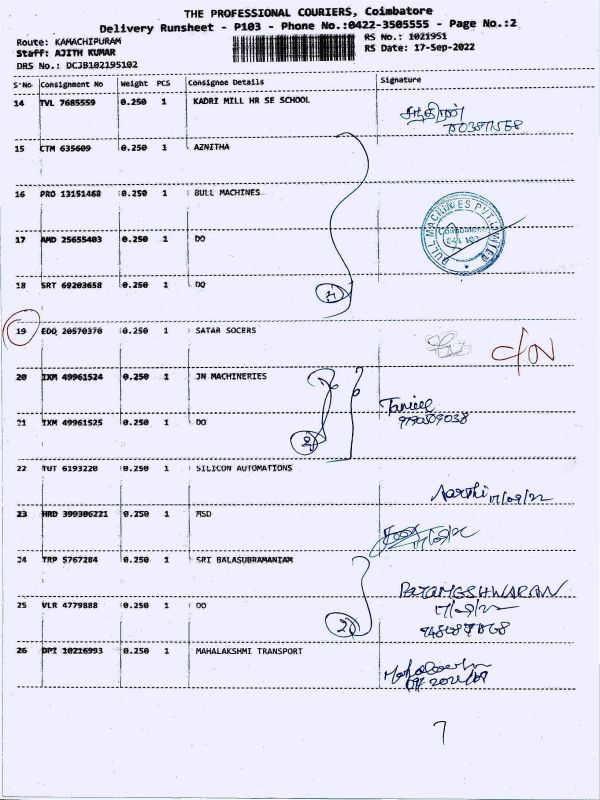 THE PROFESSIONAL COURIERS, Coimbatore
Delivery Runsheet - P103 - Phone No.:0422-3505555 - Page No.:2
Route: KAMACHIPURAM
RS No.: 1021951
Staff: AJITH KUMAR
RS Date: 17-Sep-2022
DRS No.: DCJB102195102
S'No Consignment No Weight PCS Consignee Details Signature
14 TVL 7685559 0.250 1 KADRI MILL HR SE SCHOOL
15 CTM 635609 0.250 1 AZNITHA
16 PRO 13151468 0.250 1 BULL MACHINES
BULL MACHINES PVT LIMITED
Coimbatore
17 AMD 25655403 0.250 1 DO
18 SRT 69203658 0.250 1 DO
19 EDQ 20570370 0.250 1 SATAR SOCERS
20 IXM 49961524 0.250 1 JN MACHINERIES
21 IXM 49961525 0.250 1 DO
22 TUT 6193220 0.250 1 SILICON AUTOMATIONS
Aarthi 17/09/22
23 HRD 399306221 0.250 1 MSD
24 TRP 5767284 0.250 1 SRI BALASUBRAMANIAM
PARAMESHWARAN
17/09/22
25 VLR 4779888 0.250 1 DO
2
26 DPI 10216993 0.250 1 MAHALAKSHMI TRANSPORT
7